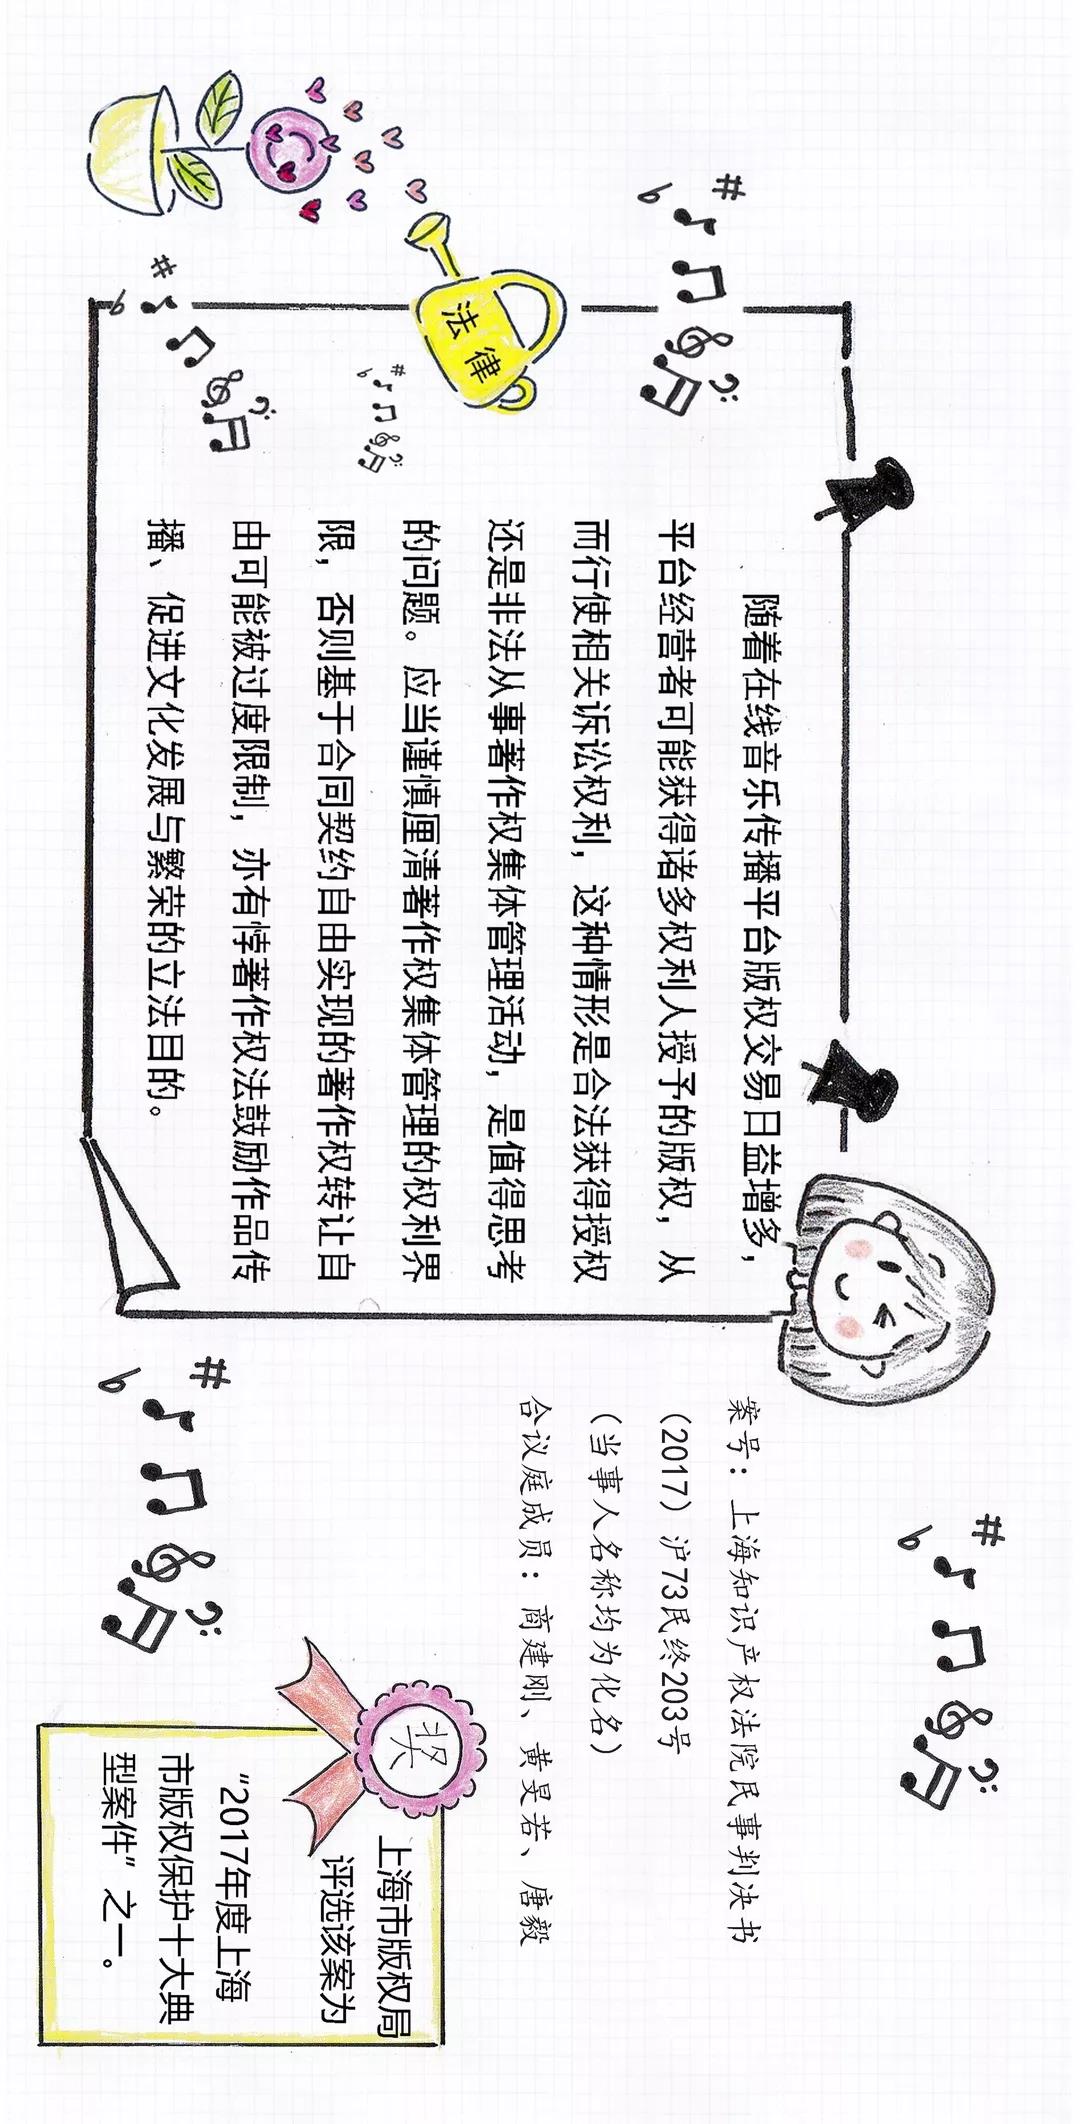 法律
随着在线音乐传播平台版权交易日益增多，
平台经营者可能获得诸多权利人授予的版权，从
而行使相关诉讼权利，这种情形是合法获得授权
还是非法从事著作权集体管理活动，是值得思考
的问题。应当谨慎厘清著作权集体管理的权利界
限，否则基于合同契约自由实现的著作权转让自
由可能被过度限制，亦有悖著作权法鼓励作品传
播、促进文化发展与繁荣的立法目的。
案号：上海知识产权法院民事判决书
（2017）沪73民终203号
（当事人名称均为化名）
合议庭成员：商建刚、黄旻若、唐毅
奖
上海市版权局
评选该案为
“2017年度上海
市版权保护十大典
型案件”之一。